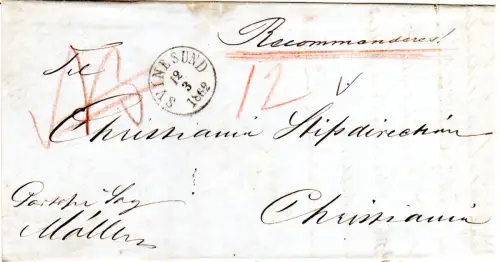 Recommanderes!
Til
SVINESUND
12
3
1862
12
Christiania Stiftsdirection
Christiania
Møller